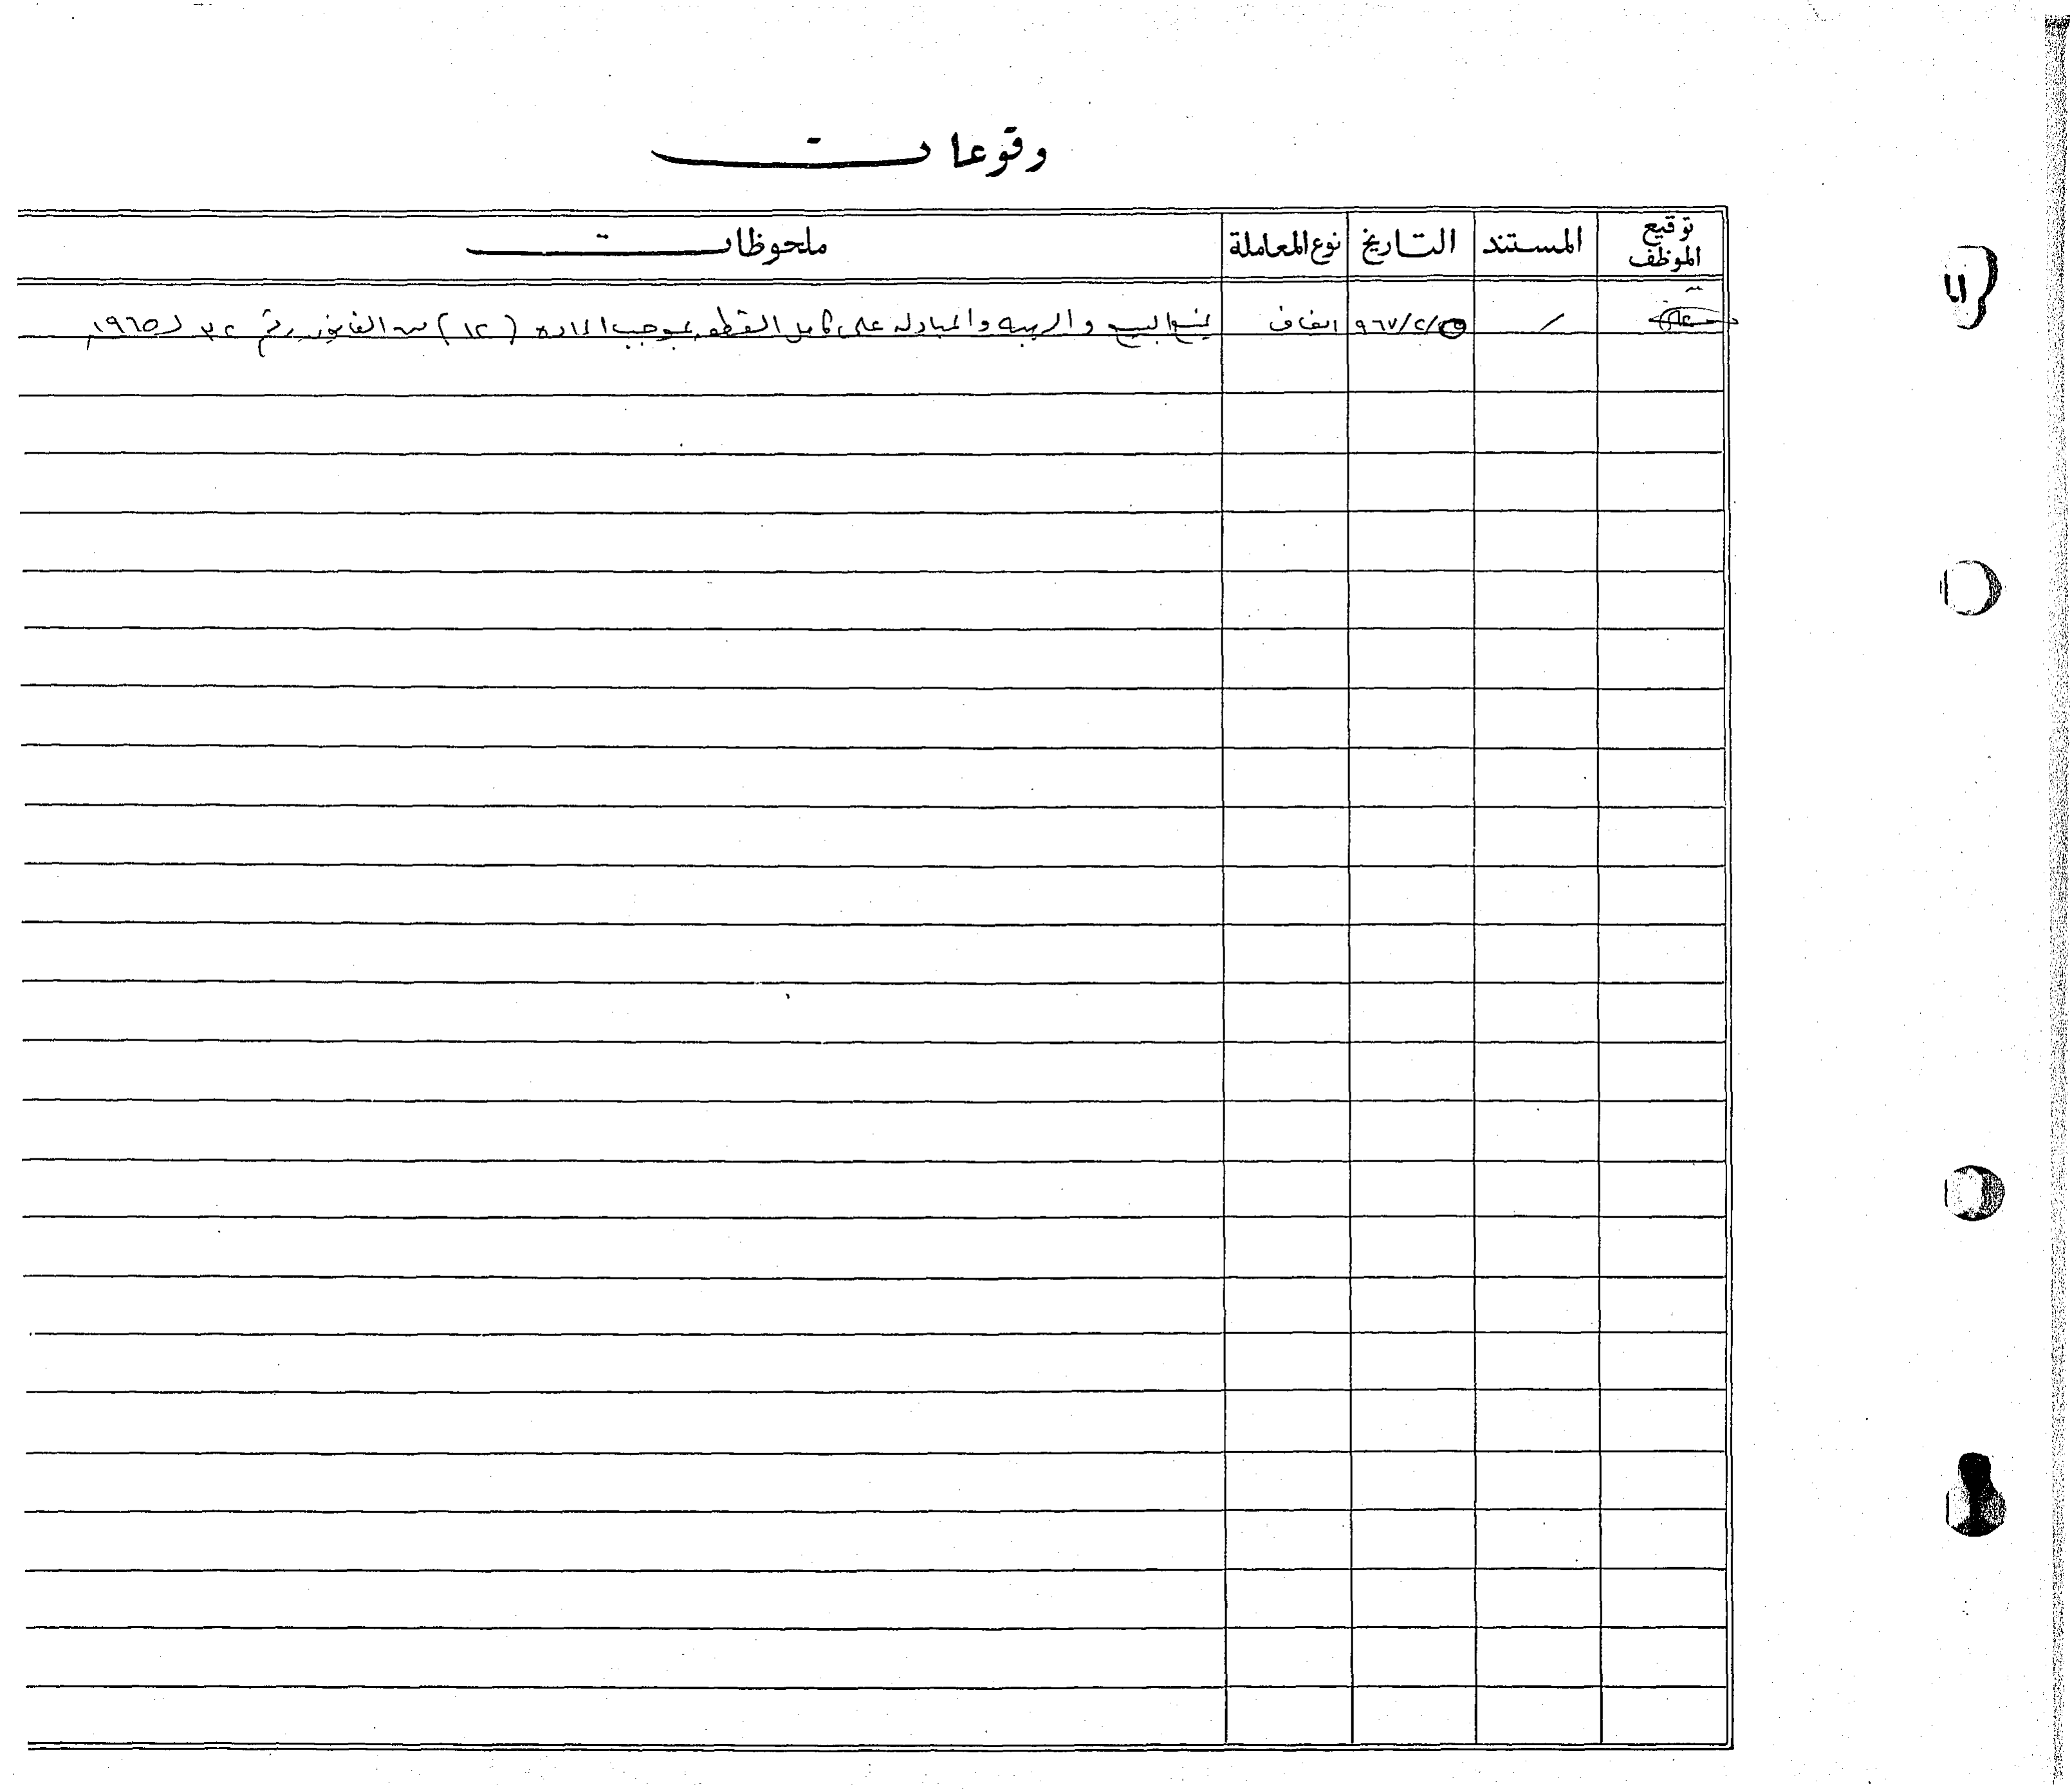 وقوعات
توقيع الموظف المستند التاريخ نوع المعاملة ملحوظات
٩٦٧/٢/ ايقاف يمنع البيع والرهنه والمبادله على كامل القطعه بموجب الماده (١٢) من القانون رقم ٣٢ لـ ١٩٦٥م